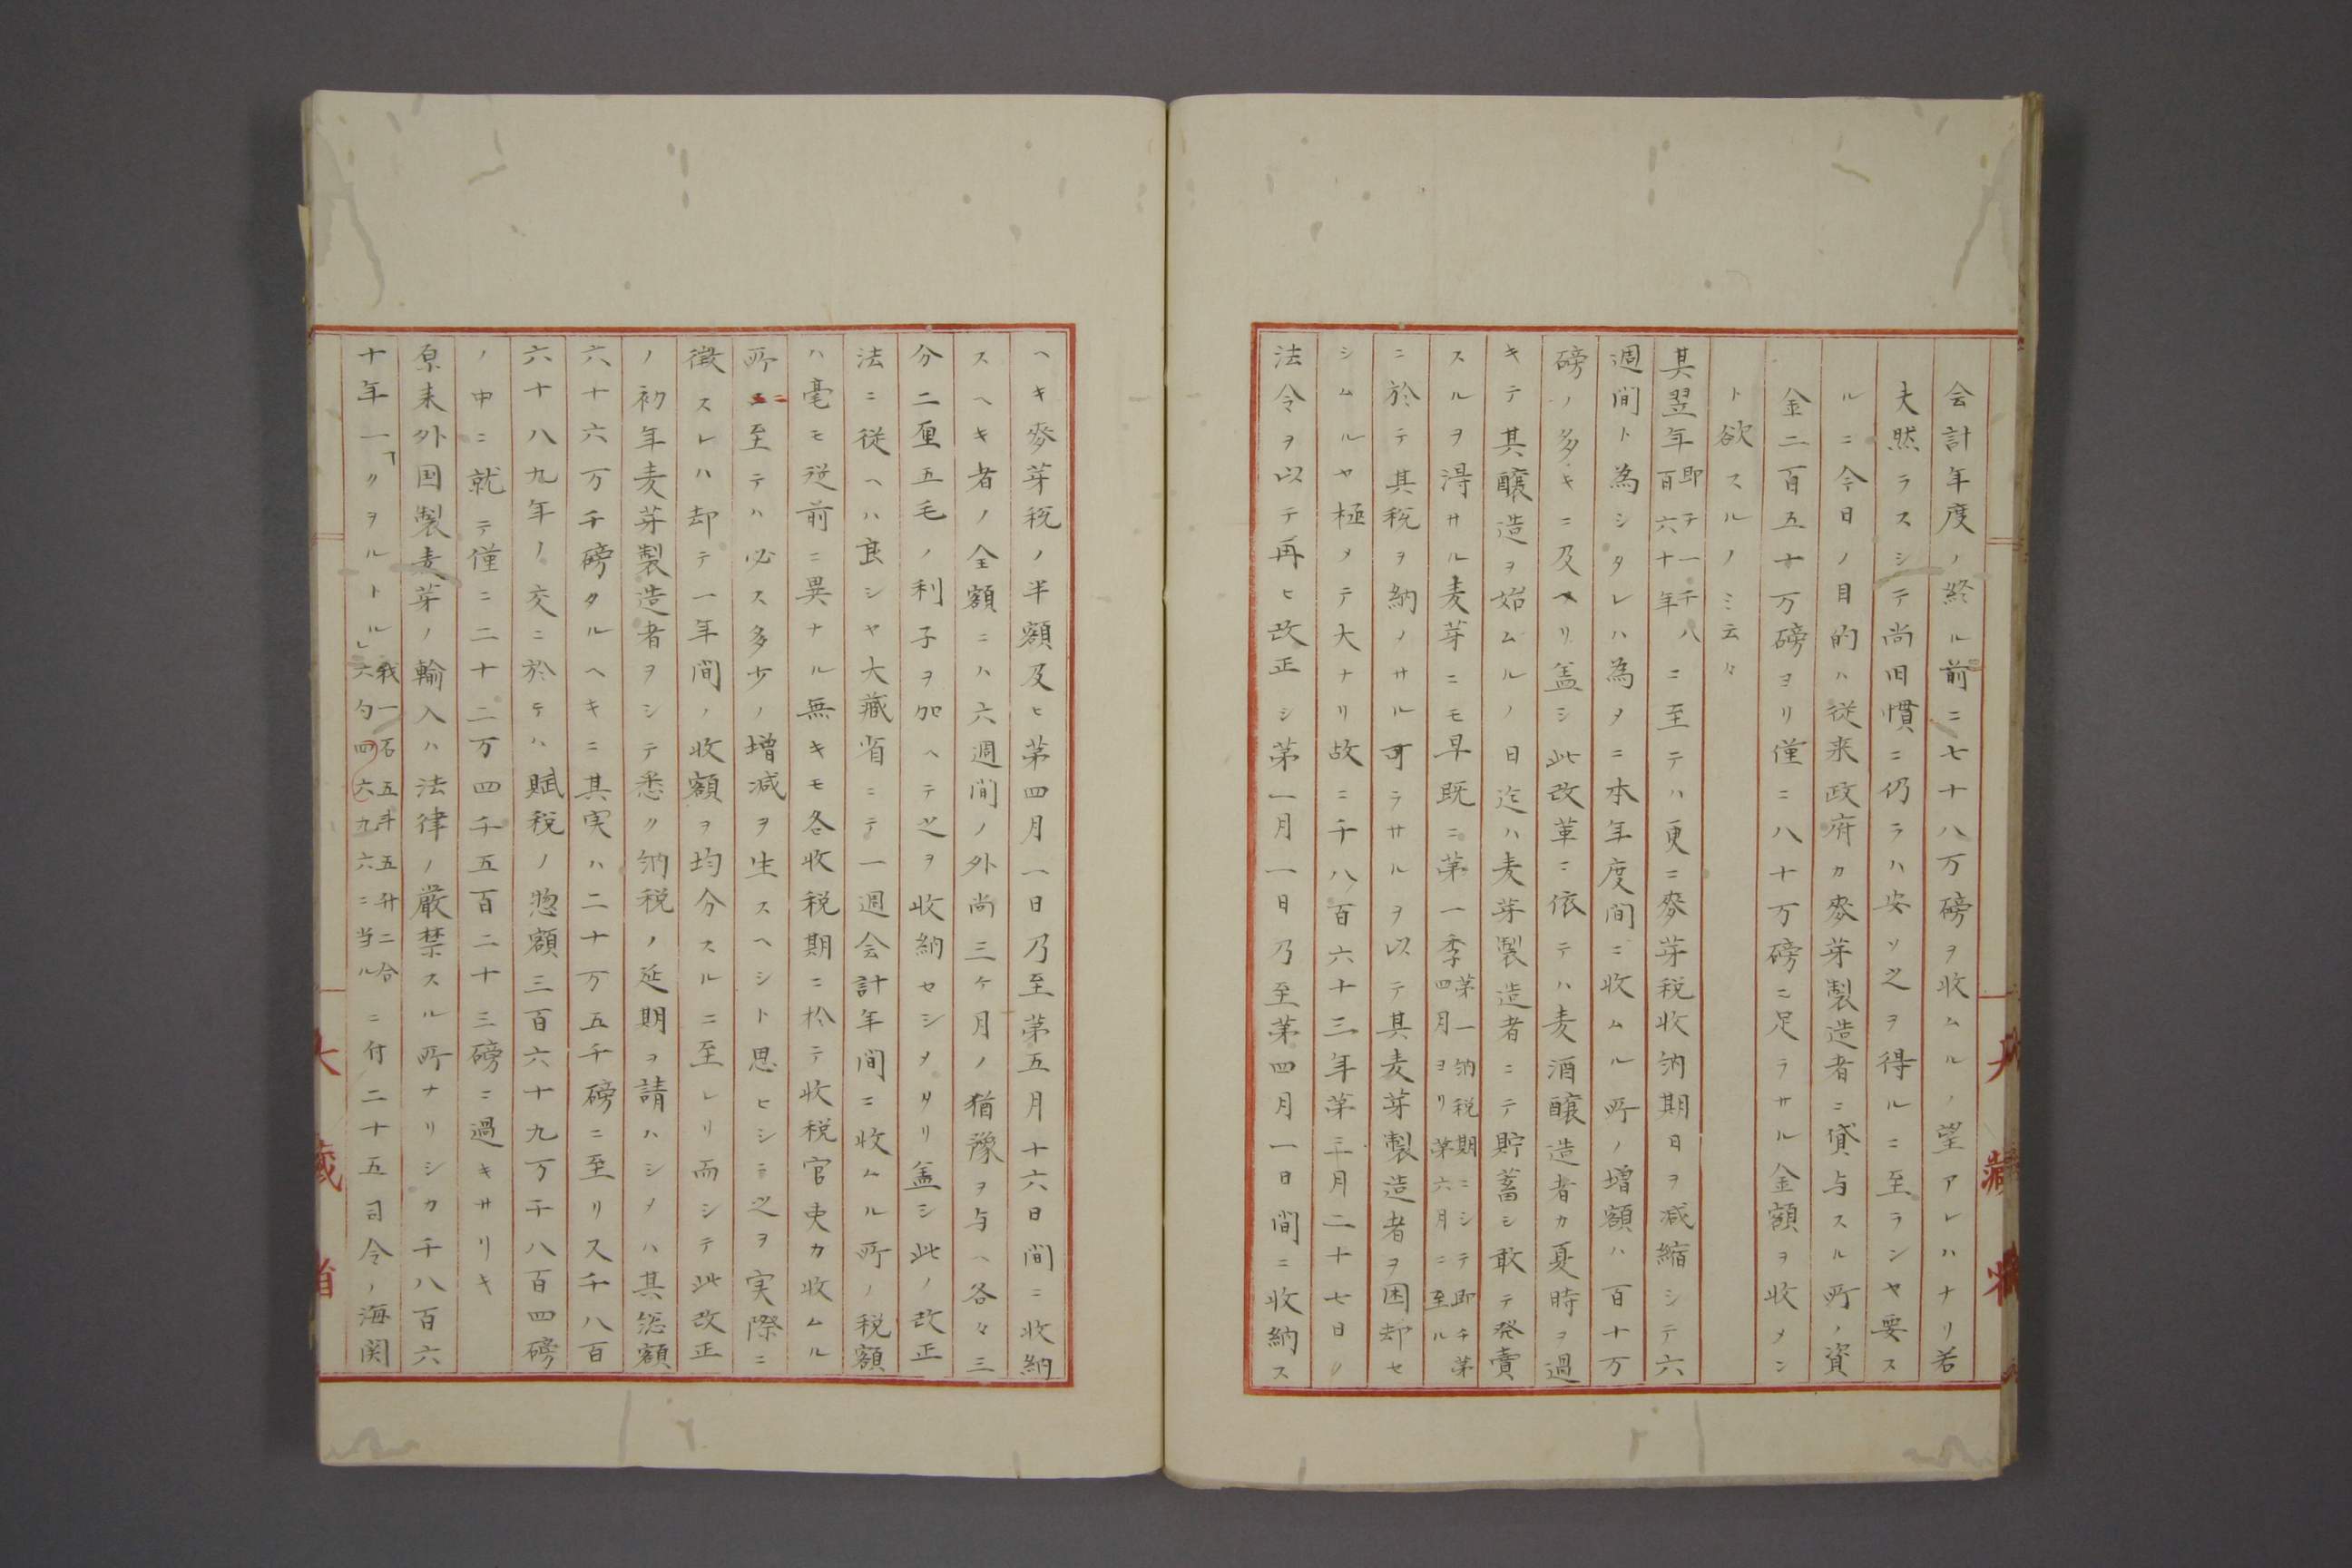 会計年度ノ終ル前ニ七十八万磅ヲ收ムルノ望アレハナリ若
夫然ラスシテ尚旧慣ニ仍ラハ安ソ之ヲ得ルニ至ランヤ要ス
ルニ今日ノ目的ハ従来政府カ麥芽製造者ニ貸与スル所ノ資
金二百五十万磅ヨリ僅ニ八十万磅ニ足ラサル金額ヲ收メン
ト欲スルノミ云々
其翌年即チ一千八百六十年ニ至テハ更ニ麥芽税收納期日ヲ減縮シテ六
週間ト為シタレハ為メニ本年度間ニ收ムル所ノ増額ハ百十万
磅ノ多キニ及ヘリ盖シ此改革ニ依テハ麦酒醸造者カ夏時ヲ過
キテ其醸造ヲ始ムルノ日迄ハ麦芽製造者ニテ貯蓄シ敢テ発賣
スルヲ得サル麦芽ニモ早既ニ第一季第一納税期ニシテ即チ第四月ヨリ第六月ニ至ル
ニ於テ其税ヲ納ノサル可ラサルヲ以テ其麦芽製造者ヲ困却セ
シムルヤ極メテ大ナリ故ニ千八百六十三年第三月二十七日ノ
法令ヲ以テ再ヒ改正シ第一月一日乃至第四月一日間ニ收納ス
ヘキ麥芽税ノ半額及ヒ第四月一日乃至第五月十六日間ニ收納
スヘキ者ノ全額ニハ六週間ノ外尚三ケ月ノ猶豫ヲ与ヘ各々三
分二厘五毛ノ利子ヲ加ヘテ之ヲ收納セシメタリ盖シ此ノ改正
法ニ従ヘハ良シヤ大藏省ニテ一週会計年間ニ收ムル所ノ税額
ハ毫モ従前ニ異ナル無キモ各收税期ニ於テ收税官吏カ收ムル
所ニ至テハ必ス多少ノ増減ヲ生スヘシト思ヒシニ之ヲ実際ニ
徴スレハ却テ一年間ノ收額ヲ均分スルニ至レリ而シテ此改正
ノ初年麦芽製造者ヲシテ悉ク納税ノ延期ヲ請ハシメハ其総額
六十六万千磅タルヘキニ其実ハ二十万五千磅ニ至リス千八百
六十八九年ノ交ニ於テハ賦税ノ惣額三百六十九万千八百四磅
ノ中ニ就テ僅ニ二十二万四千五百二十三磅ニ過キサリキ
原来外国製麦芽ノ輸入ハ法律ノ厳禁スル所ナリシカ千八百六
十年一「クヲルトル」我一石五斗五升二合六勺四六九六ニ当ルニ付二十五司令ノ海関
大藏省